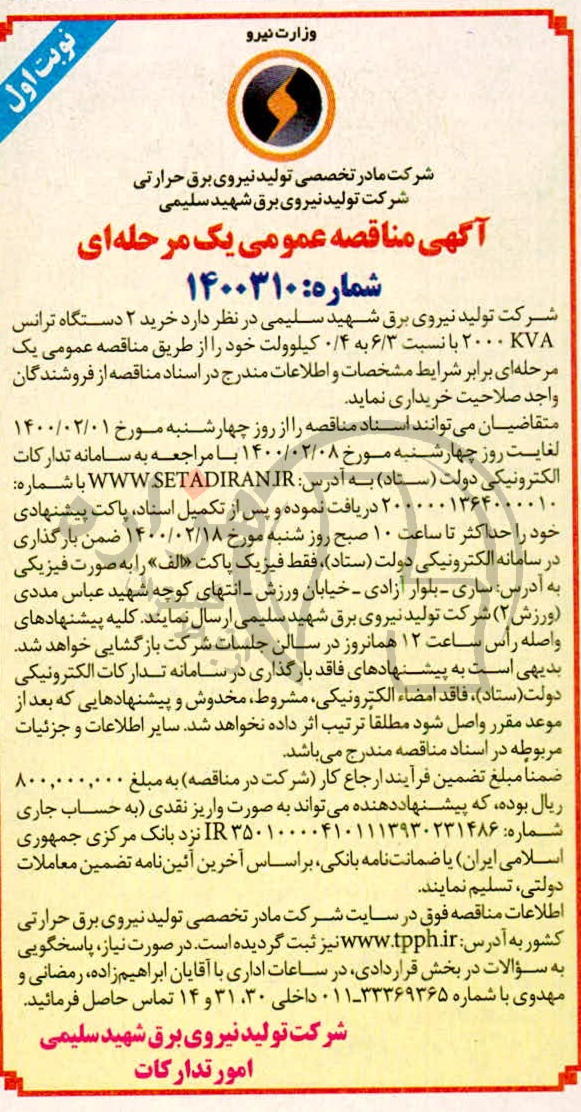 وزارت نیرو
نوبت اول
شرکت مادر تخصصی تولید نیروی برق حرارتی
شرکت تولید نیروی برق شهید سلیمی
آگهی مناقصه عمومی یک مرحله‌ای
شماره: ۱۴۰۰۳۱۰
شرکت تولید نیروی برق شهید سلیمی در نظر دارد خرید ۲ دستگاه ترانس
۲۰۰۰ KVA با نسبت ۶/۳ به ۰/۴ کیلوولت خود را از طریق مناقصه عمومی یک
مرحله‌ای برابر شرایط مشخصات و اطلاعات مندرج در اسناد مناقصه از فروشندگان
واجد صلاحیت خریداری نماید.
متقاضیان می‌توانند اسناد مناقصه را از روز چهارشنبه مورخ ۱۴۰۰/۰۲/۰۱
لغایت روز چهارشنبه مورخ ۱۴۰۰/۰۲/۰۸ با مراجعه به سامانه تدارکات
الکترونیکی دولت (ستاد) به آدرس: WWW.SETADIRAN.IR با شماره:
۲۰۰۰۰۰۱۳۶۴۰۰۰۰۱۰ دریافت نموده و پس از تکمیل اسناد، پاکت پیشنهادی
خود را حداکثر تا ساعت ۱۰ صبح روز شنبه مورخ ۱۴۰۰/۰۲/۱۸ ضمن بارگذاری
در سامانه الکترونیکی دولت (ستاد)، فقط فیزیک پاکت «الف» را به صورت فیزیکی
به آدرس: ساری ـ بلوار آزادی ـ خیابان ورزش ـ انتهای کوچه شهید عباس مددی
(ورزش ۲) شرکت تولید نیروی برق شهید سلیمی ارسال نمایند. کلیه پیشنهادهای
واصله رأس ساعت ۱۲ همانروز در سالن جلسات شرکت بازگشایی خواهد شد.
بدیهی است به پیشنهادهای فاقد بارگذاری در سامانه تدارکات الکترونیکی
دولت(ستاد)، فاقد امضاء الکترونیکی، مشروط، مخدوش و پیشنهادهایی که بعد از
موعد مقرر واصل شود مطلقاً ترتیب اثر داده نخواهد شد. سایر اطلاعات و جزئیات
مربوطه در اسناد مناقصه مندرج می‌باشد.
ضمناً مبلغ تضمین فرآیند ارجاع کار (شرکت در مناقصه) به مبلغ ۸۰۰,۰۰۰,۰۰۰
ریال بوده، که پیشنهاددهنده می‌تواند به صورت واریز نقدی (به حساب جاری
شماره: IR ۳۵۰۱۰۰۰۰۴۱۰۱۱۱۳۹۳۰۲۳۱۴۸۶ نزد بانک مرکزی جمهوری
اسلامی ایران) یا ضمانت‌نامه بانکی، براساس آخرین آئین‌نامه تضمین معاملات
دولتی، تسلیم نمایند.
اطلاعات مناقصه فوق در سایت شرکت مادر تخصصی تولید نیروی برق حرارتی
کشور به آدرس: www.tpph.ir نیز ثبت گردیده است. در صورت نیاز، پاسخگویی
به سؤالات در بخش قراردادی، در ساعات اداری با آقایان ابراهیم‌زاده، رمضانی و
مهدوی با شماره ۳۳۳۶۹۳۶۵ـ۰۱۱ داخلی ۳۰، ۳۱ و ۱۴ تماس حاصل فرمائید.
شرکت تولید نیروی برق شهید سلیمی
امور تدارکات